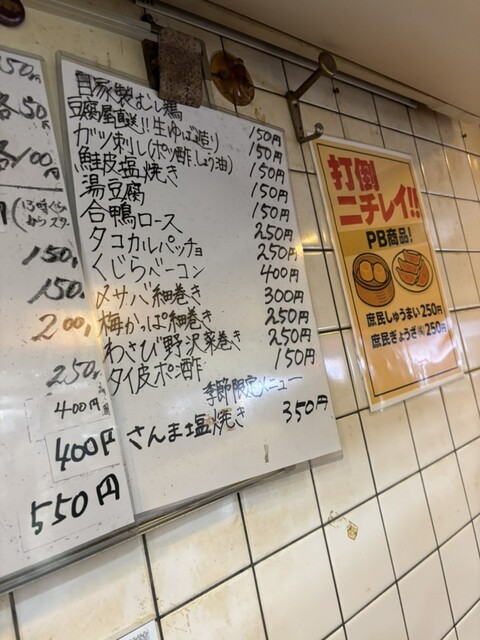 50円
各50
各100円
(13時ぐら
からスタ
150
150
200
250
400円
400円
550円
自家製むし鶏 150円
豆腐屋直送!!生ゆば造り 150円
ガツ刺し(ポン酢.しょう油) 150円
鮭皮塩焼き 150円
湯豆腐 150円
合鴨ロース 250円
タコカルパッチョ 250円
くじらベーコン 400円
〆サバ細巻き 300円
梅かっぱ細巻き 250円
わさび野沢菜巻き 250円
タイ皮ポン酢 150円
季節限定メニュー
さんま塩焼き 350円
打倒
ニチレイ!!
PB商品!
庶民しゅうまい250円
庶民ぎょうざ 250円